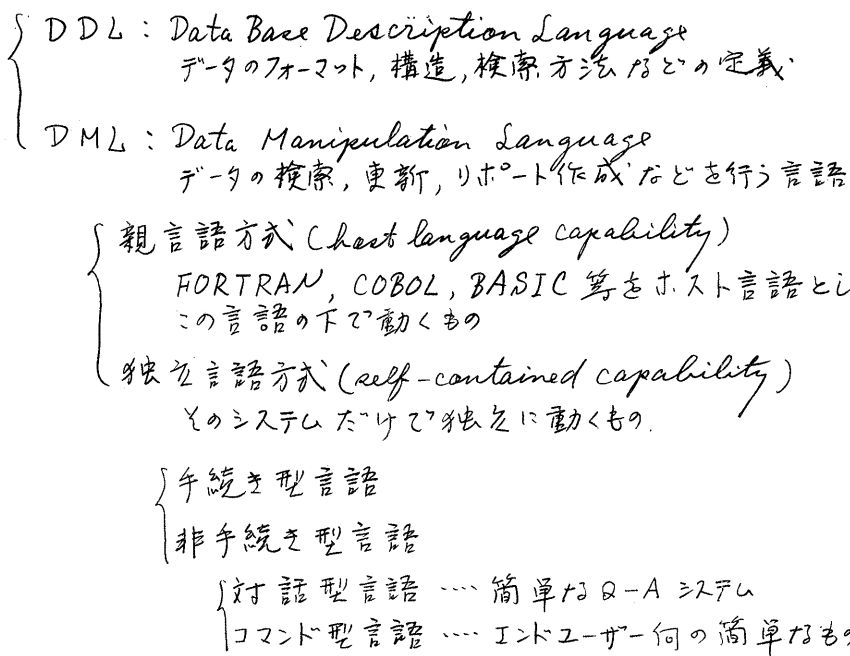 DDL : Data Base Description Language
データのフォーマット, 構造, 検索方法などの定義
DML : Data Manipulation Language
データの検索, 更新, リポート作成などを行う言語
親言語方式 (host language capability)
FORTRAN, COBOL, BASIC 等をホスト言語とし
この言語の下で動くもの
独立言語方式 (self-contained capability)
そのシステムだけで独立に動くもの.
手続き型言語
非手続き型言語
対話型言語 ‥‥ 簡単なQ-A システム
コマンド型言語 ‥‥ エンドユーザー向の簡単なもの